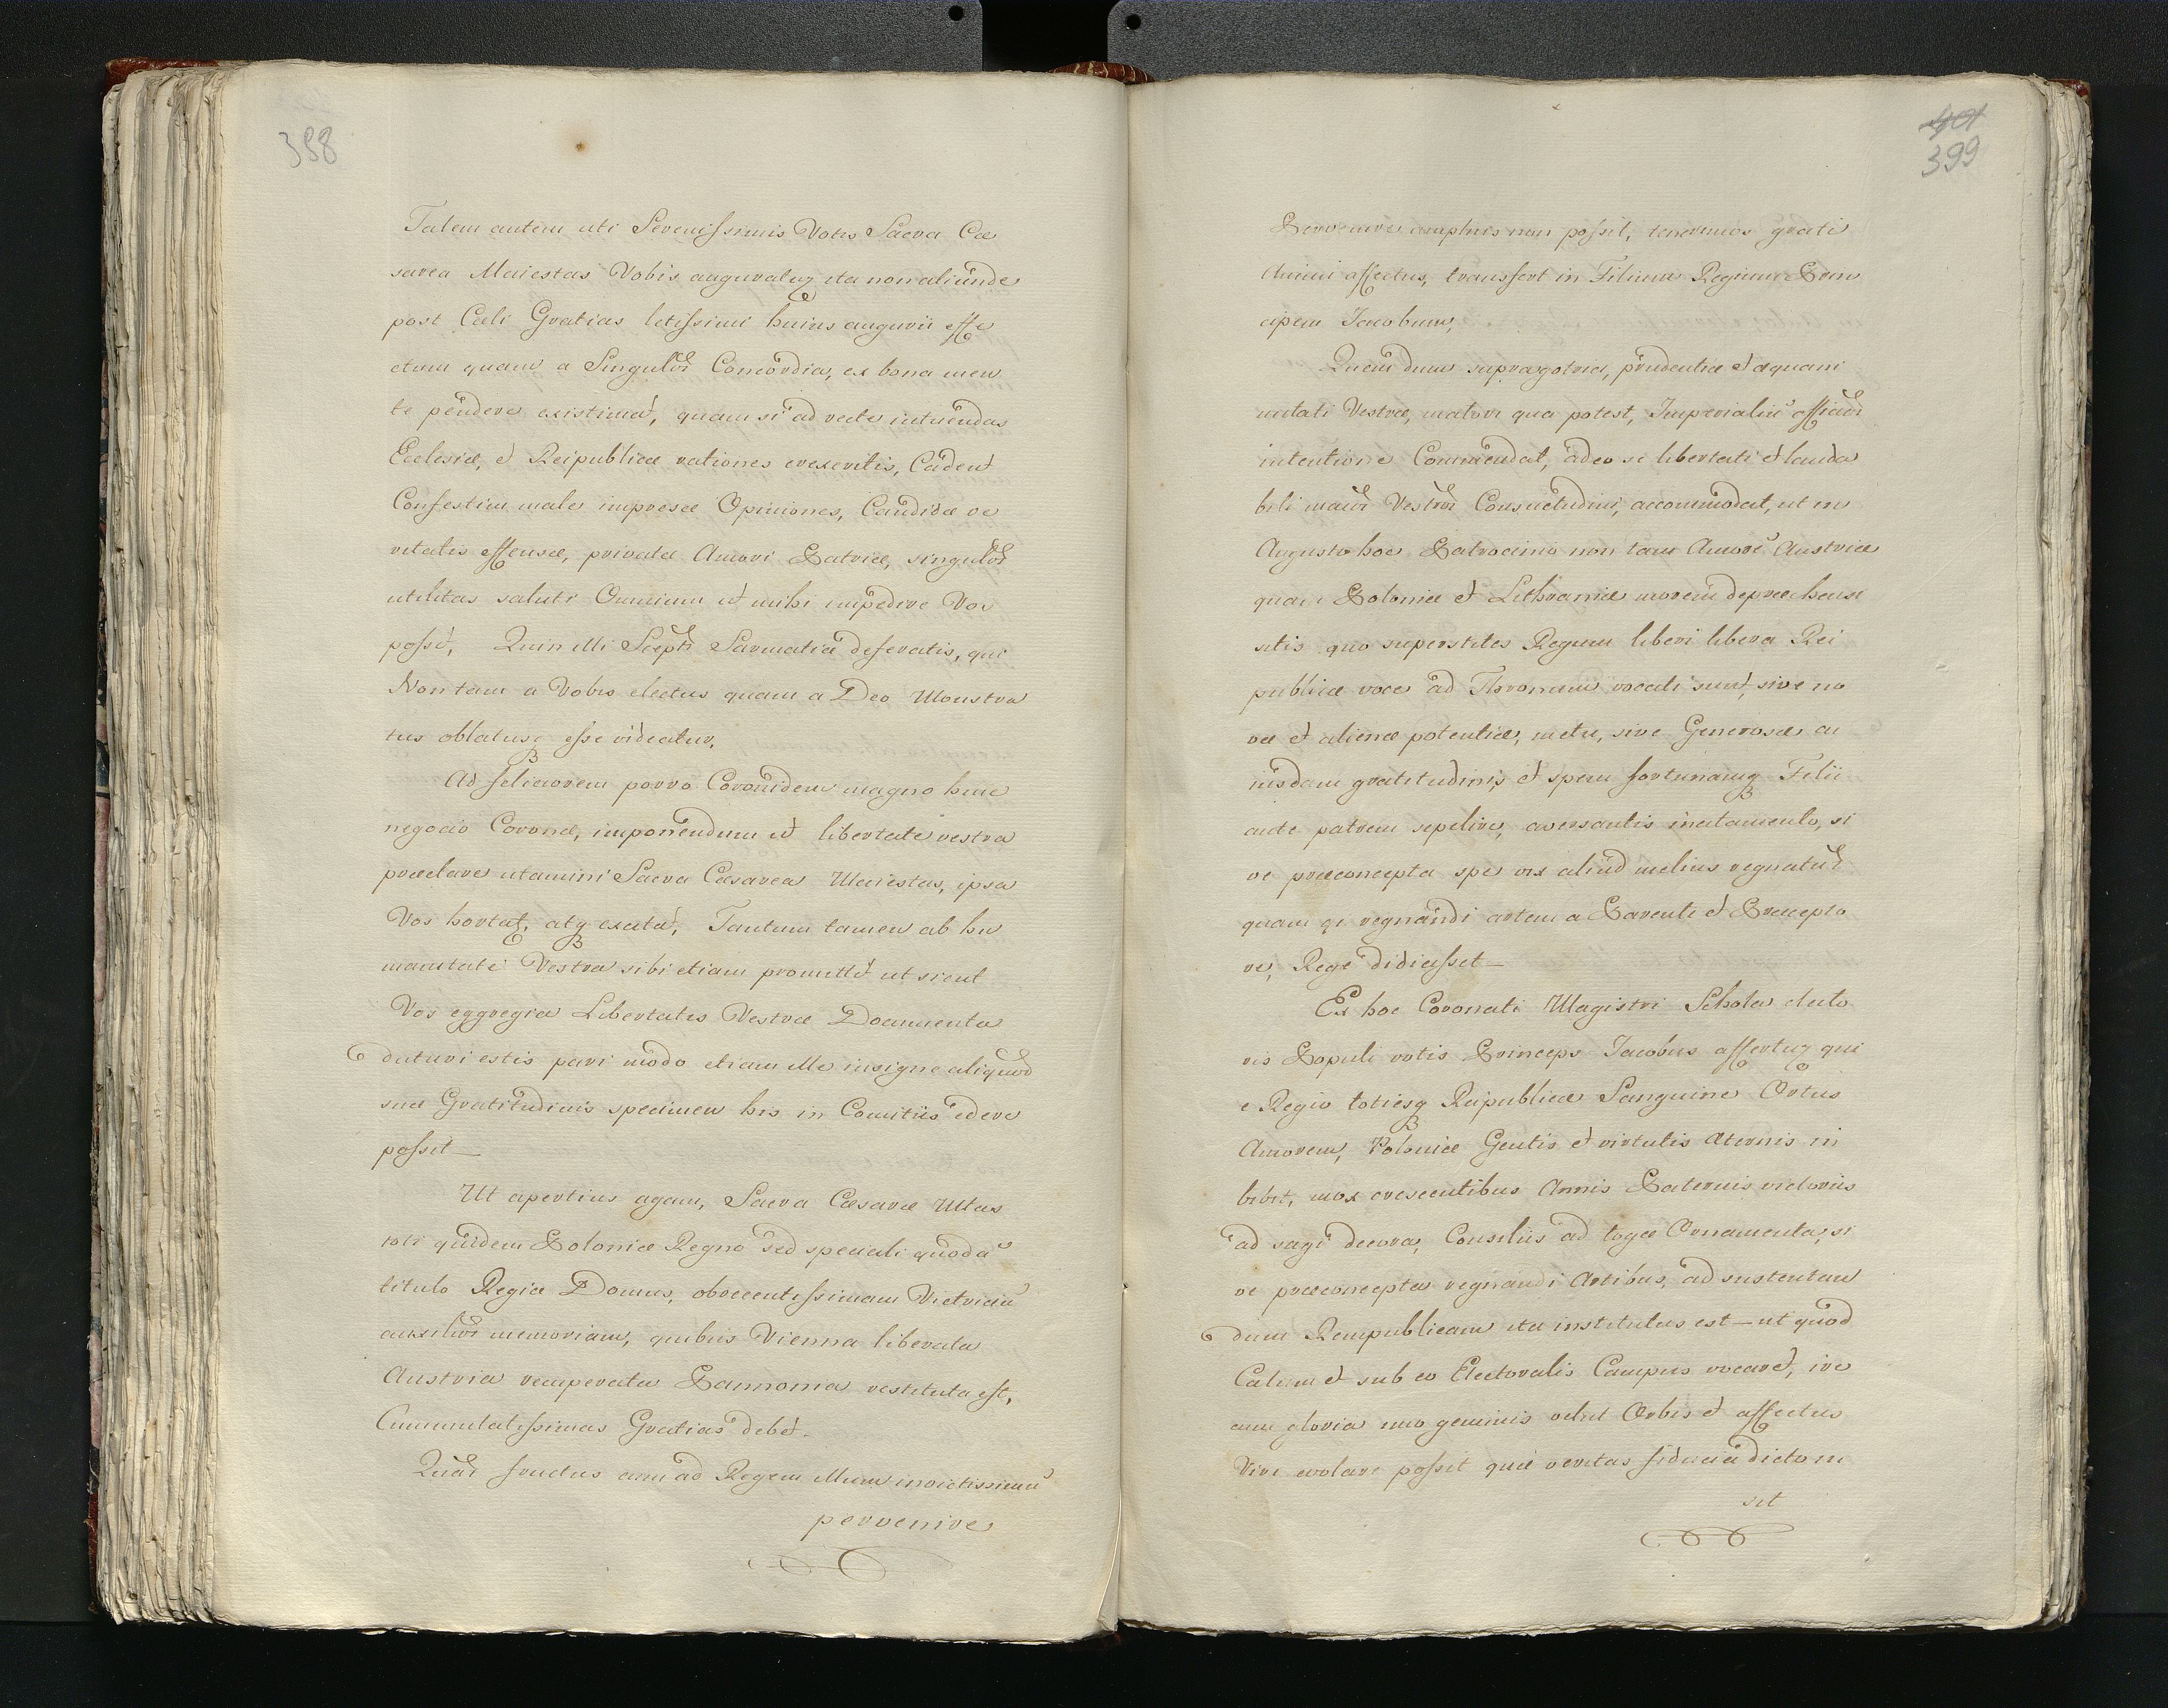 388
Talem autem uti Serenissimis Votis Sacra Cæ
sarea Maiestas Vobis auguratur, ita non aliunde
post Cœli Gratias letissimi huius augurii effe
ctum quam a Singulor Concordia, ex bona men
te pendere existimat, quam si ad recte intuendas
Ecclesiæ, et Reipublicæ rationes erexeritis, Cadent
Confestim male impresæ Opiniones, Candidæ ve
ritatis offensæ, privatæ Amori Patriæ, singulor
utilitas saluti Omnium et mihi impedire Vos
possit, Quin illi Sceptr Sarmatiæ deferatis, qui
Non tam a Vobis electus quam a Deo Monstra
tus oblatusq esse videatur,
Ad feliciorem porro Coronidem magno huic
negocio Coronæ, imponendum et libertate vestra
præclare utamini Sacra Cæsarea Maiestas, ipsa
Vos hortat, atq excitat, Tantum tamen ab hu
manitate Vestra sibi etiam promittit ut sicut
Vos eggregia Libertatis Vestræ Documenta
daturi estis pari modo etiam Me insigne aliquod
suæ Gratitudinis specimen his in Comitiis edere
possit
Ut apertius agam, Sacra Cæsarea Mtas
toti quidem Poloniæ Regno sed speciali quodã
titulo Regiæ Domus, ob recentissimam Victriciũ
auxilior memoriam, quibus Vienna liberata
Austria recuperata Pannonia restituta est,
Cumulatissimas Gratias debet.
Quar fructus cum ad Regem Illum invictissimũ
pervenire
401
399
Pervenire amplius non possit, teneremos grati
Animi affectus, transfert in Filium Regium Prin
cipem Iacobum,
Quem dum suprægotria, prudentiæ et æquani
mitati Vestræ, maiori qua potest, Imperialiũ officior
intentione Commendat, adeo se libertati et lauda
bili maior Vestror Consuetudini, accommodat, ut in
Augusto hoc Patrocinio non tam Amorẽ Austriæ
quam Poloniæ et Lithvaniæ morem deprehensu
sitis quo superstites Regum liberi libera Rei
publicæ voce ad Thronum vocati sunt, sive no
væ et alienæ potentiæ, metu, sive Generosæ cu
iusdam gratitudinis, et spem fortunamq Filii
ante patrem sepelire, aversantis incitamento, si
ve præconcepta spe vix aliud melius regnatur
quam qi regnandi artem a Parente et Præcepto
re, Rege didicisset
Ex hoc Coronati Magistri Schola electo
ris Populi votis Princeps Iacobus offertur, qui
e Regio totiesq Reipublicæ Sanguine Ortus
Amorem, Poloniæ Gentis et virtutis Æternis im
bibit, mox crescentibus Annis Paternis victoriis
ad sagi decora, Consiliis ad togæ Ornamenta, si
ve præconcepta regnandi Artibus, ad sustentan
dam Rempublicam ita institutus est – ut quod
Cælum et sub eo Electoralis Campus vocaret, ire
cum gloria uno geminis velut Orbis et affectus
Viri evolare possit quæ veritas fiducia dictum
sit